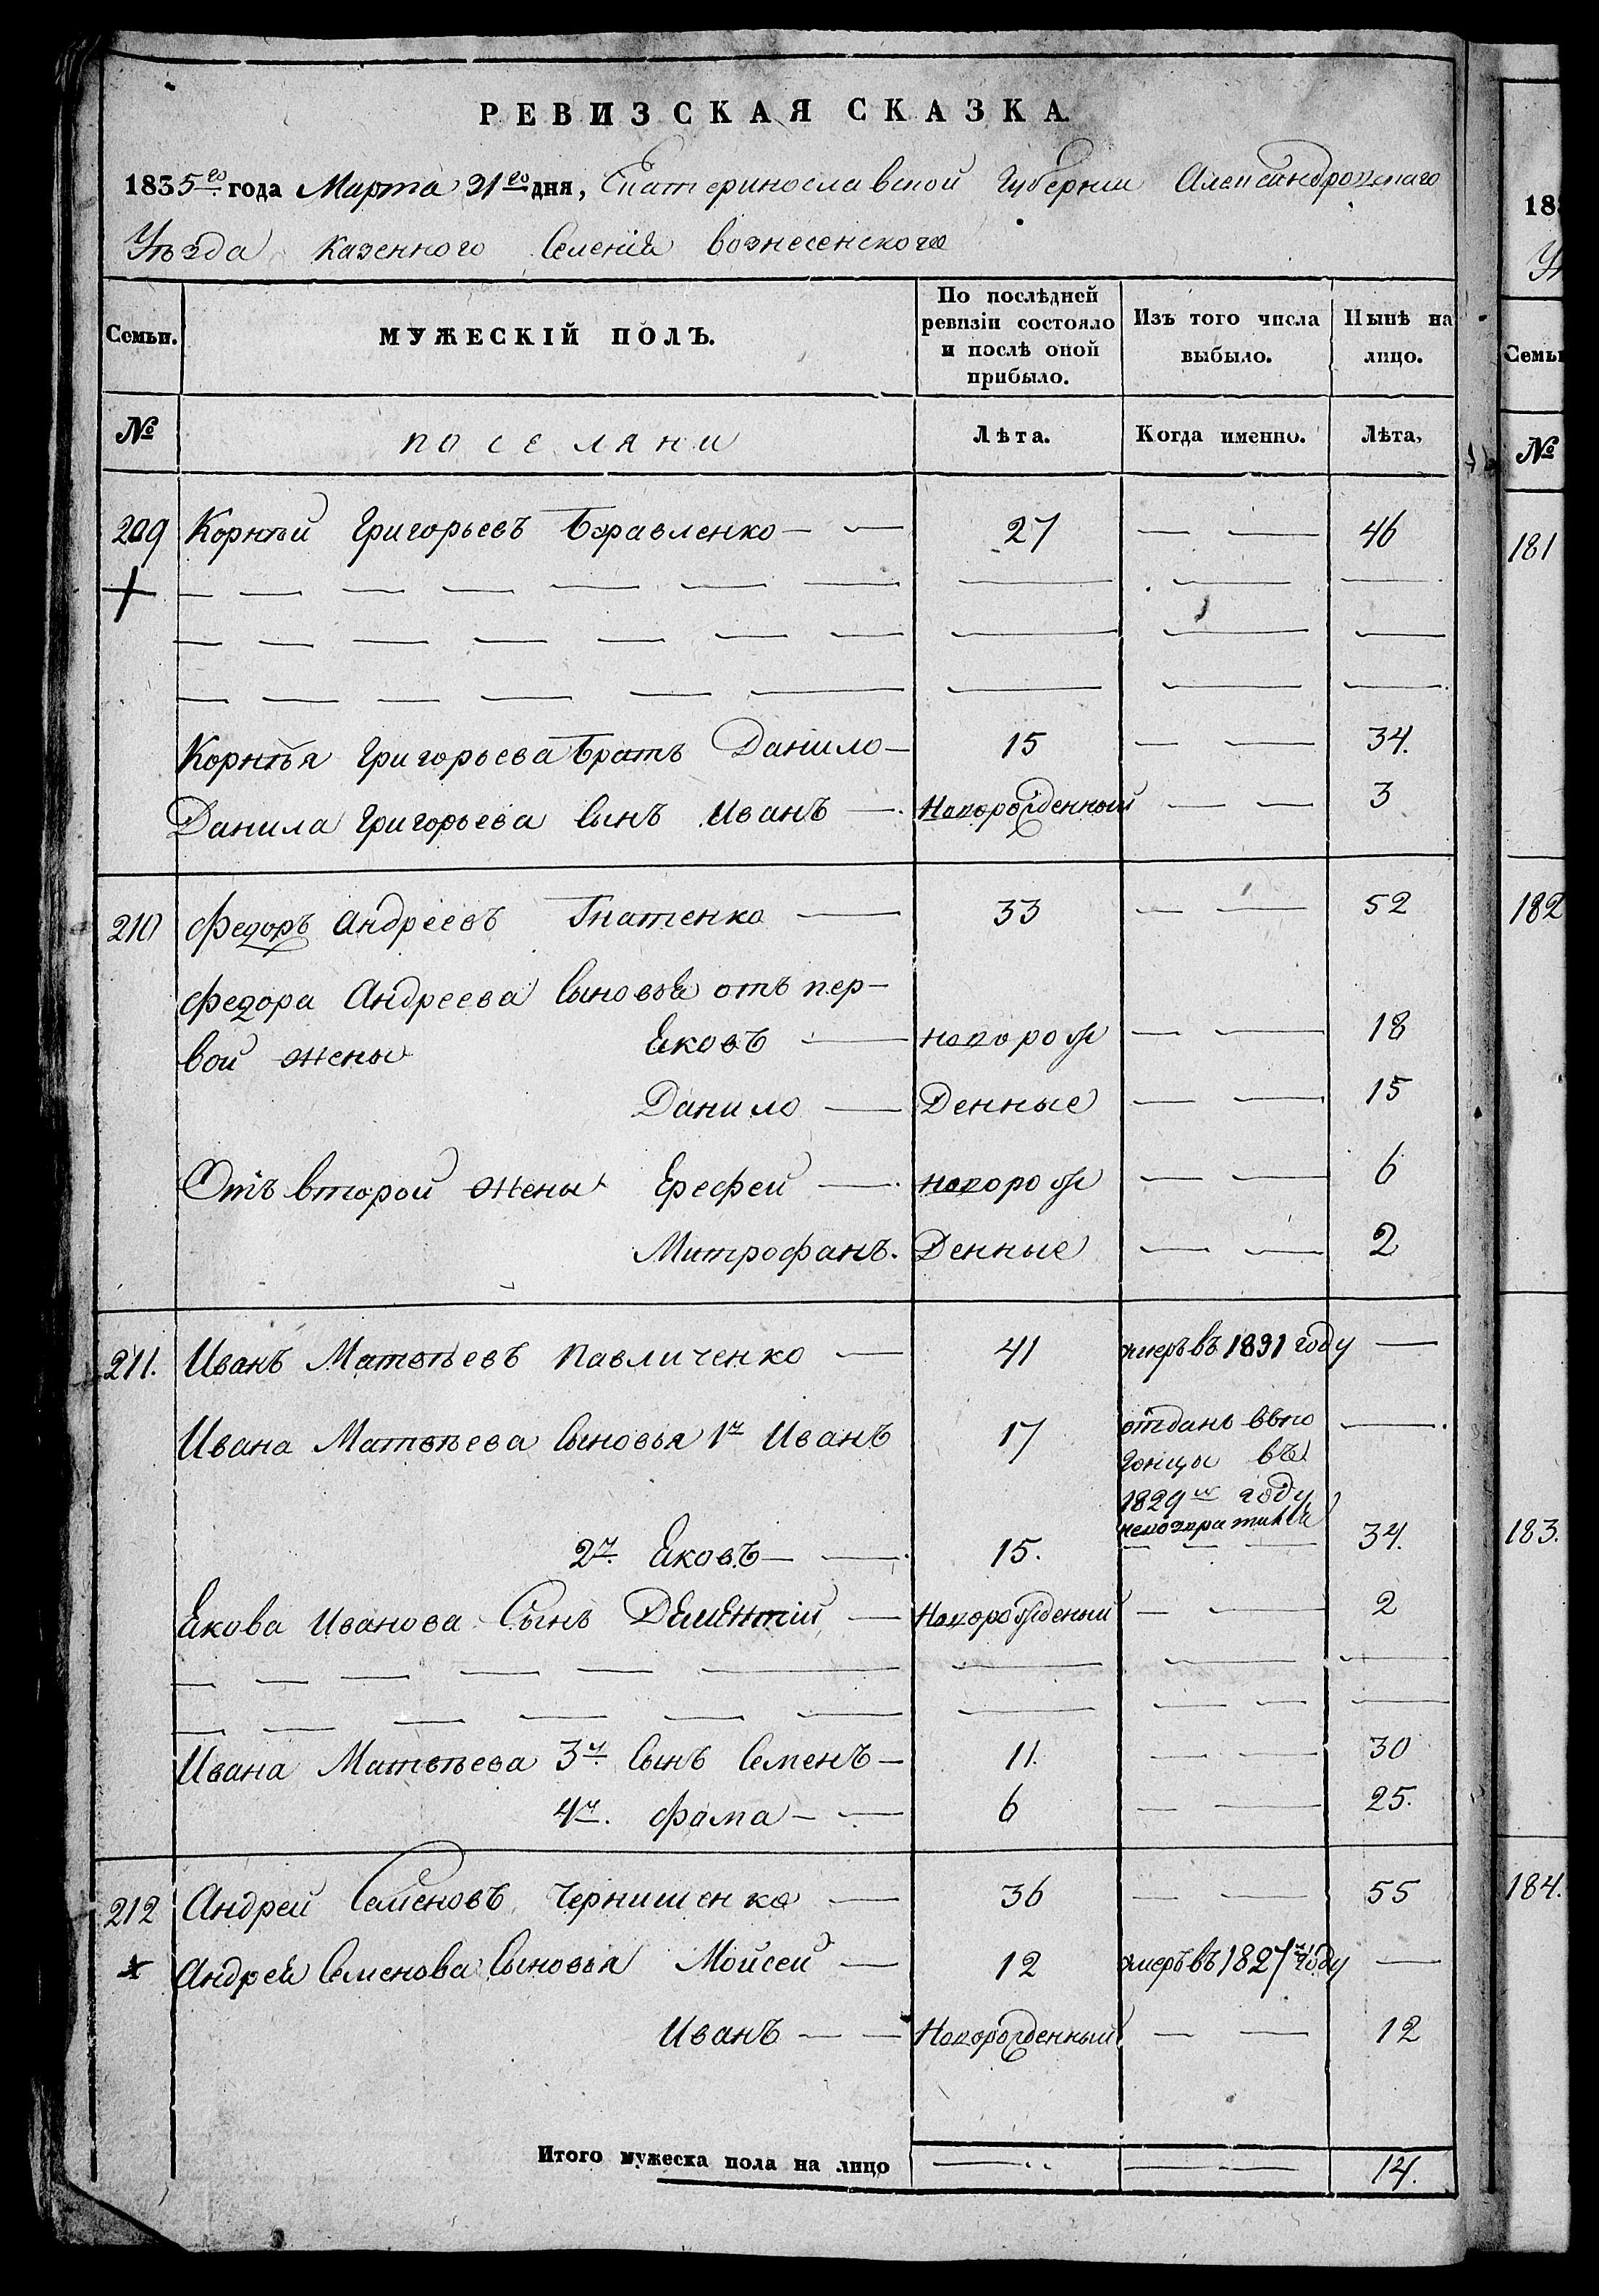 РЕВИЗСКАЯ СКАЗКА.
1835го года Марта 31го дня, Екатеринославской Губернии Александровскаго
Уѣзда казенного Селенія вознесенского
Семьи. МУЖЕСКІЙ ПОЛЪ. По послѣдней ревизіи состояло и послѣ оной прибыло. Изъ того числа выбыло. Нынѣ на лицо.
№ поселяни Лѣта. Когда именно. Лѣта,
209 Корнѣй Григорьевъ — — 27 — — 46
Корнѣя Григорьева Братъ Данило — 15 — — 34.
Данила Григорьева Сынъ Иванъ — Новорожденный — — 3
210 Федоръ Андреевъ Гнатенко — 33 — — 52
Федора Андреева Сыновья отъ пер-
вой жены Яковъ — новорож — — 18
Данило — Денные — — 15
Отъ второй жены Ерефей — новорож — — 6
Митрофанъ. Денные — — 2
211. Иванъ Матвѣевъ Павличенко — 41 умеръ въ 1831 году —
Ивана Матвѣева Сыновья 1й Иванъ 17 отданъ въпо —
гонцы въ
1829м году
2й Яковъ — — 15. — — — 34.
Якова Иванова Сынъ Дементій — Новорожденый — — 2
Ивана Матвѣева 3й Сынъ Семенъ — 11. — — 30
4й. Фома — — 6 — — 25.
212 Андрей Семеновъ Чернишенко — 36 — — 55
Андрея Семенова Сыновья Мойсей — 12 умеръ въ 1827м году —
Иванъ — — Новорожденный — — 12
Итого мужеска пола на лицо — — 14.
183
Семьи
№
181
182
183.
184.